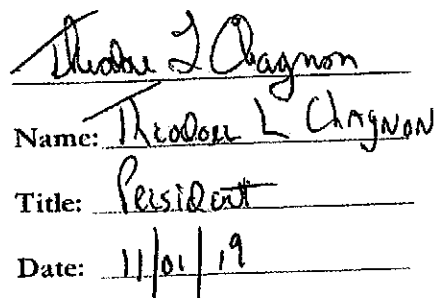 Theodore L Chagnon
Name: Theodore L Chagnon
Title: President
Date: 11/01/19